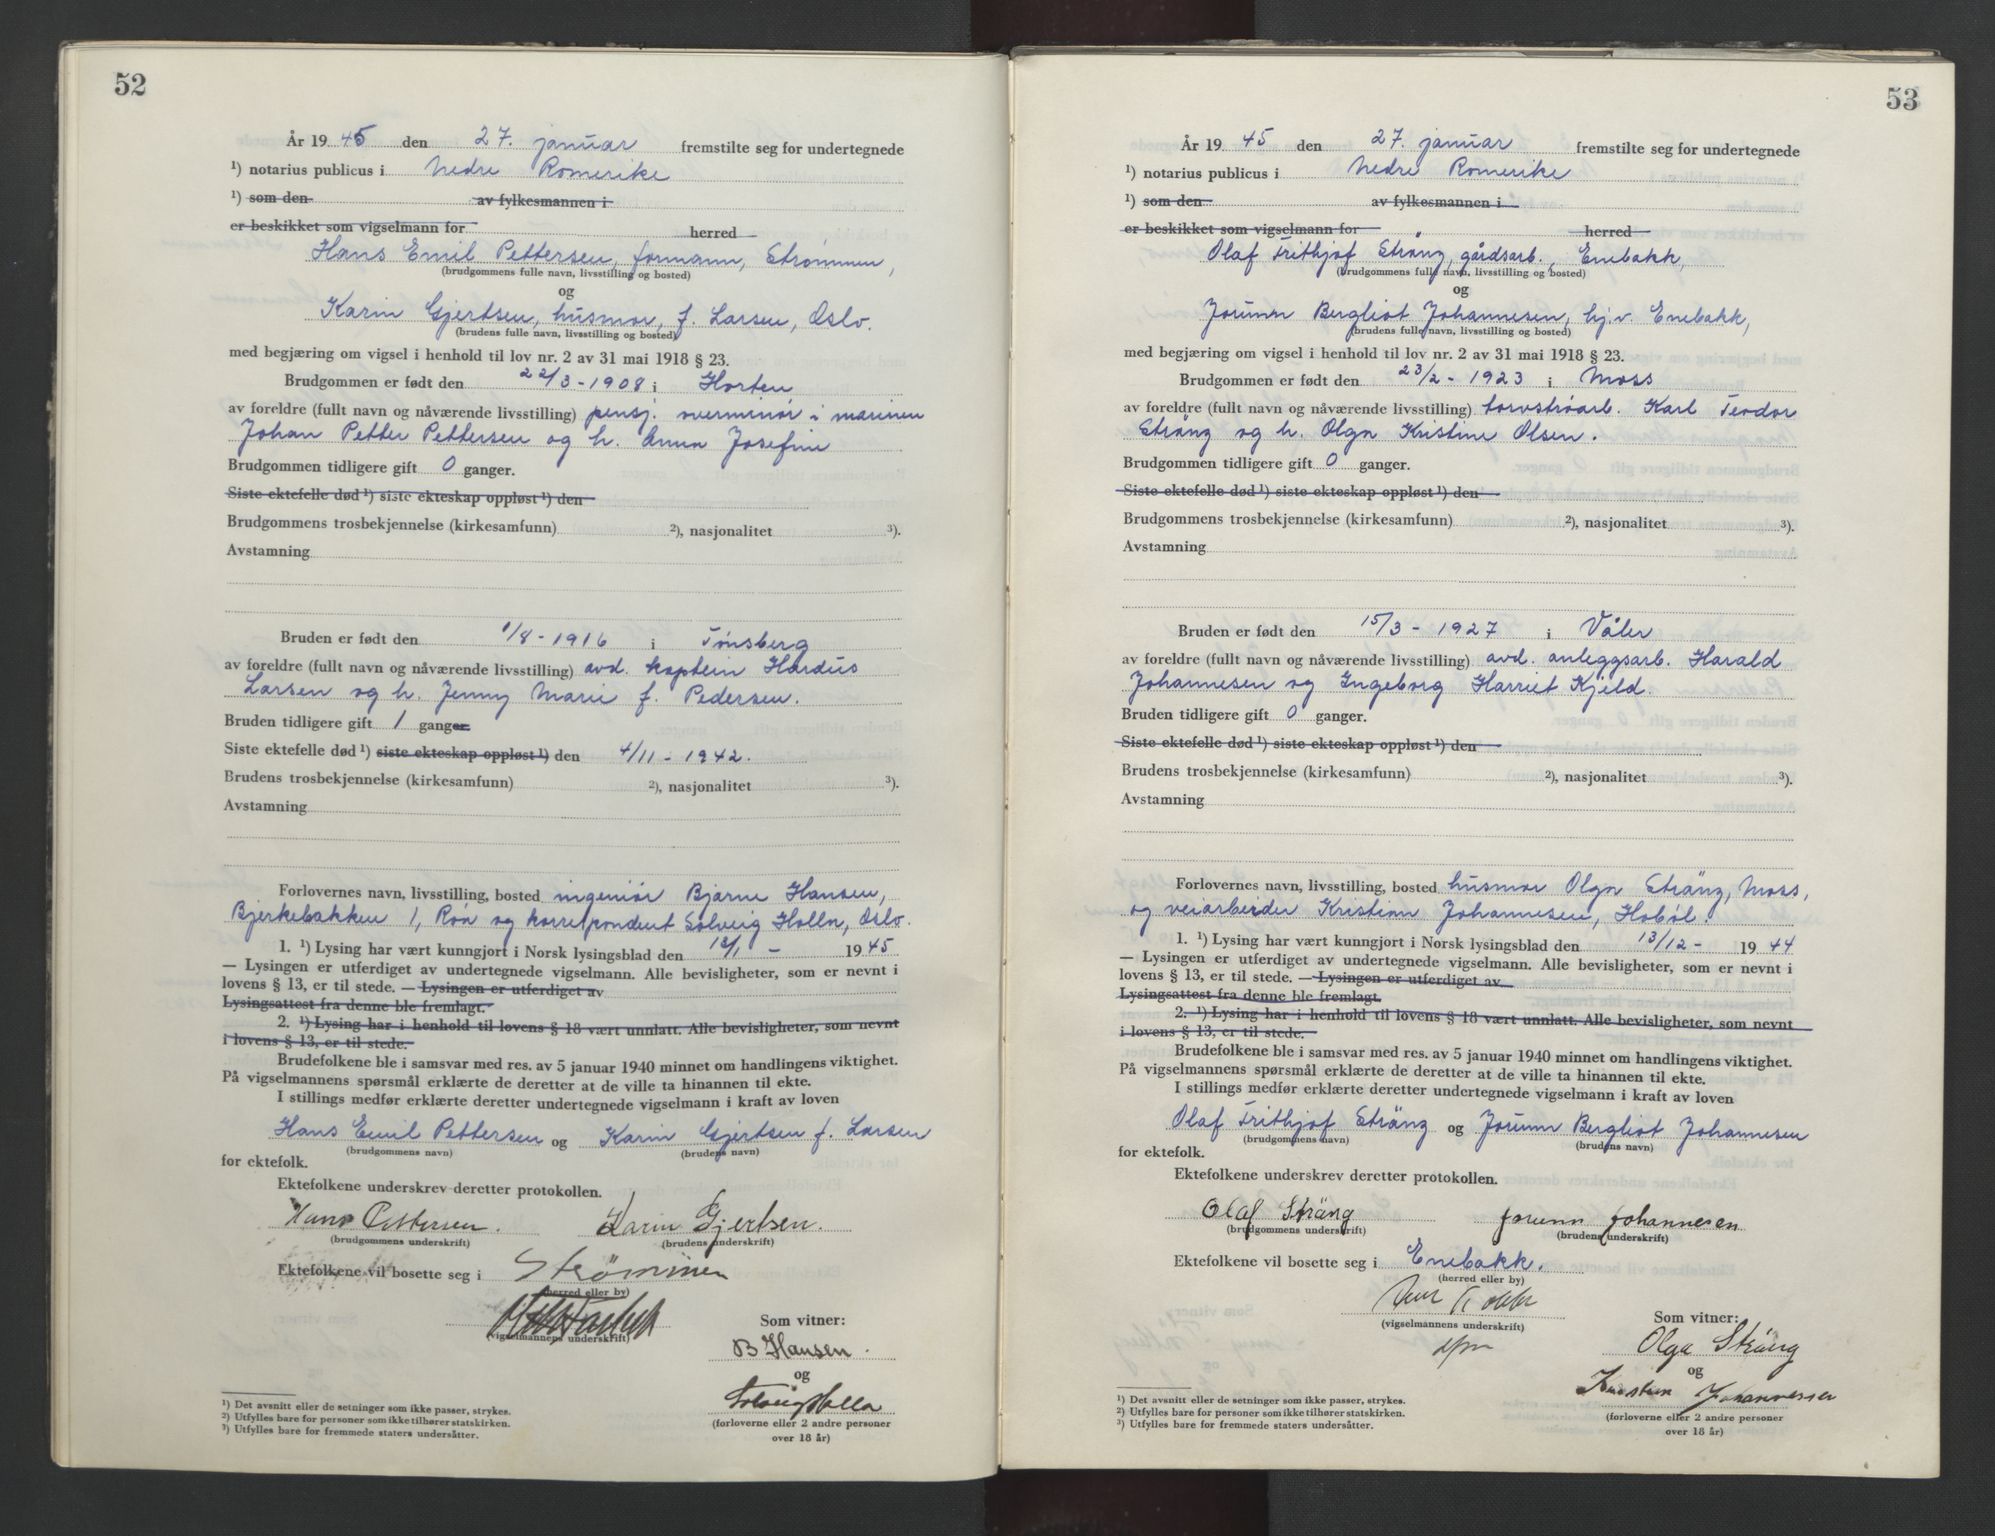 52
År 19 45 den 27. januar fremstilte seg for undertegnede
¹) notarius publicus i Nedre Romerike
¹) som den av fylkesmannen i
er beskikket som vigselmann for herred
Hans Emil Pettersen, formann, Strømmen,
(brudgommens fulle navn, livsstilling og bosted)
og
Karin Gjertsen, husmor, f. Larsen, Oslo.
(brudens fulle navn, livsstilling og bosted)
med begjæring om vigsel i henhold til lov nr. 2 av 31 mai 1918 § 23.
Brudgommen er født den 22/3 - 1908 i Horten
av foreldre (fullt navn og nåværende livsstilling) pensj. overminør i marinen
Johan Petter Pettersen og h. Anna Josefine
Brudgommen tidligere gift 0 ganger.
Siste ektefelle død ¹) siste ekteskap oppløst ¹) den
Brudgommens trosbekjennelse (kirkesamfunn) ²), nasjonalitet ³).
Avstamning
Bruden er født den 1/8 - 1916 i Tønsberg
av foreldre (fullt navn og nåværende livsstilling) avd. kaptein Hardus
Larsen og h. Jenny Marie f. Pedersen.
Bruden tidligere gift 1 ganger
Siste ektefelle død ¹) siste ekteskap oppløst ¹) den 4/11 - 1942.
Brudens trosbekjennelse (kirkesamfunn) ²), nasjonalitet ³).
Avstamning
Forlovernes navn, livsstilling, bosted ingeniør Bjarne Hansen,
Bjerkebakken 1, Røa og korrespondent Solveig Holla, Oslo.
1. ¹) Lysing har vært kunngjort i Norsk lysingsblad den 13/1 - 1945
— Lysingen er utferdiget av undertegnede vigselmann. Alle bevisligheter, som er nevnt i
lovens § 13, er til stede. — Lysingen er utferdiget av
Lysingsattest fra denne ble fremlagt.
2. ¹) Lysing har i henhold til lovens § 18 vært unnlatt. Alle bevisligheter, som nevnt
i lovens § 13, er til stede.
Brudefolkene ble i samsvar med res. av 5 januar 1940 minnet om handlingens viktighet.
På vigselmannens spørsmål erklærte de deretter at de ville ta hinannen til ekte.
I stillings medfør erklærte deretter undertegnede vigselmann i kraft av loven
Hans Emil Pettersen og Karin Gjertsen f. Larsen
(brudgommens navn) (brudens navn)
for ektefolk.
Ektefolkene underskrev deretter protokollen.
Hans Pettersen. Karin Gjertsen.
(brudgommens underskrift) (brudens underskrift)
Ektefolkene vil bosette seg i Strömmen
(herred eller by)
(vigselmannens underskrift)
Som vitner:
B Hansen.
og
Solveig Holla
(forloverne eller 2 andre personer
over 18 år)
¹) Det avsnitt eller de setninger som ikke passer, strykes.
²) Utfylles bare for personer som ikke tilhører statskirken.
³) Utfylles bare for fremmede staters undersåtter.
53
År 19 45 den 27. januar fremstilte seg for undertegnede
¹) notarius publicus i Nedre Romerike
¹) som den av fylkesmannen i
er beskikket som vigselmann for herred
Olaf Frithjof Sträng, gårdsarb., Enebakk,
(brudgommens fulle navn, livsstilling og bosted)
og
Jorunn Bergliot Johannesen, hj.v. Enebakk,
(brudens fulle navn, livsstilling og bosted)
med begjæring om vigsel i henhold til lov nr. 2 av 31 mai 1918 § 23.
Brudgommen er født den 23/2 - 1923 i Moss
av foreldre (fullt navn og nåværende livsstilling) torvstrøarb. Karl Teodor
Sträng og h. Olga Kristine Olsen.
Brudgommen tidligere gift 0 ganger.
Siste ektefelle død ¹) siste ekteskap oppløst ¹) den
Brudgommens trosbekjennelse (kirkesamfunn) ²), nasjonalitet ³).
Avstamning
Bruden er født den 15/3 - 1927 i Våler
av foreldre (fullt navn og nåværende livsstilling) avd. anleggsarb. Harald
Johannesen og Ingeborg Harriet Kjeld.
Bruden tidligere gift 0 ganger.
Siste ektefelle død ¹) siste ekteskap oppløst ¹) den
Brudens trosbekjennelse (kirkesamfunn) ²), nasjonalitet ³).
Avstamning
Forlovernes navn, livsstilling, bosted husmor Olga Sträng, Moss,
og veiarbeider Kristian Johannesen, Hobøl.
1. ¹) Lysing har vært kunngjort i Norsk lysingsblad den 13/12 - 1944
— Lysingen er utferdiget av undertegnede vigselmann. Alle bevisligheter, som er nevnt i
lovens § 13, er til stede. — Lysingen er utferdiget av
Lysingsattest fra denne ble fremlagt.
2. ¹) Lysing har i henhold til lovens § 18 vært unnlatt. Alle bevisligheter, som nevnt
i lovens § 13, er til stede.
Brudefolkene ble i samsvar med res. av 5 januar 1940 minnet om handlingens viktighet.
På vigselmannens spørsmål erklærte de deretter at de ville ta hinannen til ekte.
I stillings medfør erklærte deretter undertegnede vigselmann i kraft av loven
Olaf Frithjof Sträng og Jorunn Bergliot Johannesen
(brudgommens navn) (brudens navn)
for ektefolk.
Ektefolkene underskrev deretter protokollen.
Olaf Sträng Jorunn Johannesen
(brudgommens underskrift) (brudens underskrift)
Ektefolkene vil bosette seg i Enebakk.
(herred eller by)
(vigselmannens underskrift)
Som vitner:
Olga Sträng
og
Kristian Johannessen
(forloverne eller 2 andre personer
over 18 år)
¹) Det avsnitt eller de setninger som ikke passer, strykes.
²) Utfylles bare for personer som ikke tilhører statskirken.
³) Utfylles bare for fremmede staters undersåtter.